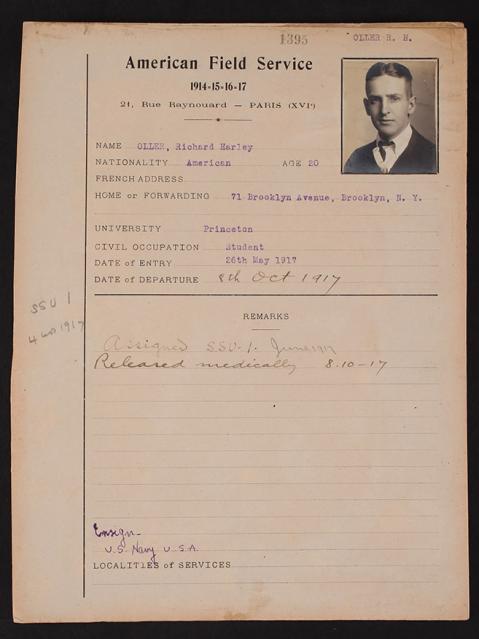 1395
OLLER R. H.
American Field Service
1914-15-16-17
21, Rue Raynouard — PARIS (XVIe)
NAME OLLER, Richard Harley
NATIONALITY American AGE 20
FRENCH ADDRESS
HOME or FORWARDING 71 Brooklyn Avenue, Brooklyn, N. Y.
UNIVERSITY Princeton
CIVIL OCCUPATION Student
DATE of ENTRY 26th May 1917
DATE of DEPARTURE 8th Oct 1917
SSU 1
1917
REMARKS
Assigned SSU-1. June 1917
Released medically 8.10-17
Ensign-
U.S. Navy U.S.A.
LOCALITIES of SERVICES